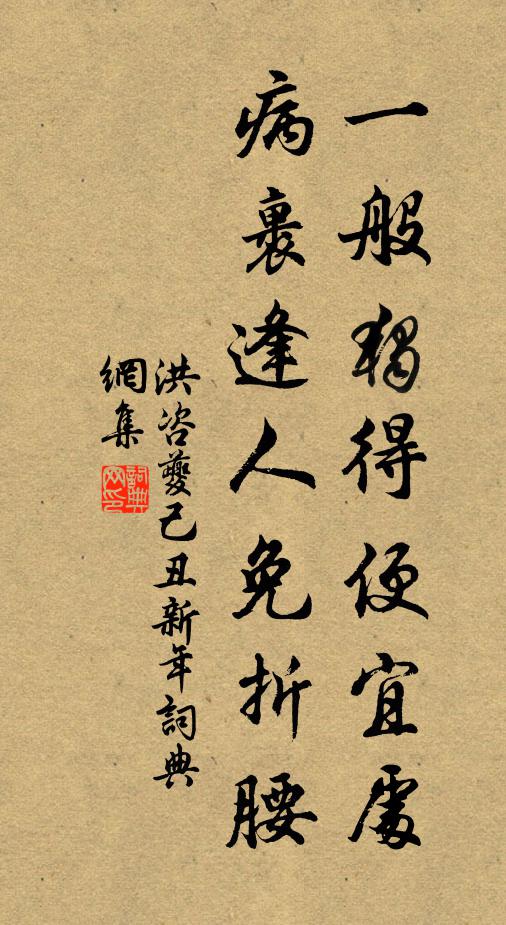 一般獨得便宜處
病裏逢人免折腰
洪咨夔己丑新年詞典
網集
詞典
网印